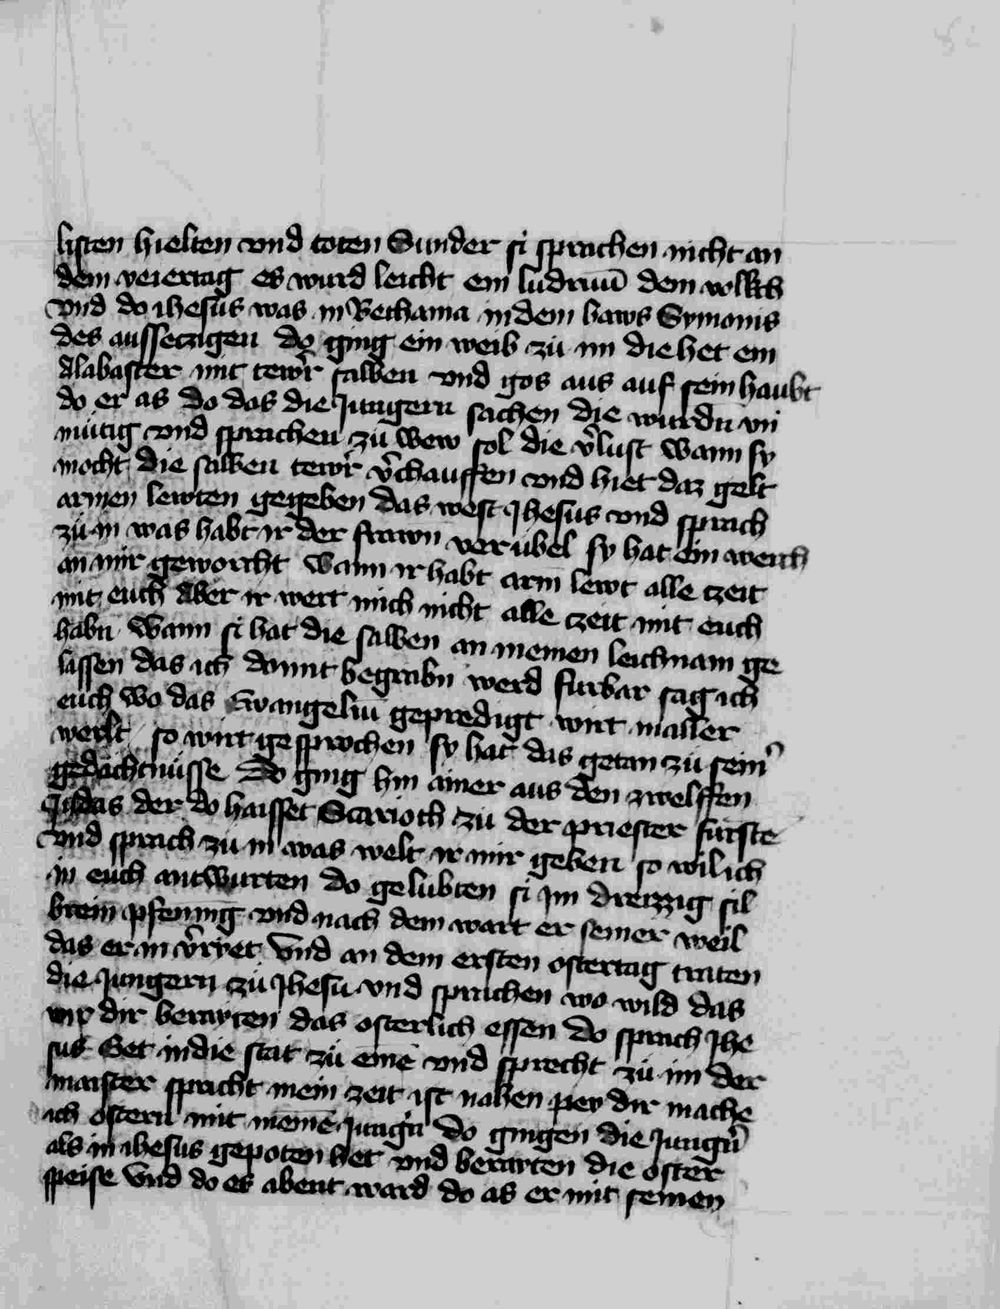 listen hielten vnd toten Sunder si sprachen nicht an
dem veiertag es wurd leicht ein ludrnū dem volkch
vnd do ihesus was in Bethania in dem haws Symonis
des ausseczigen do ging ein weib zü im die het ein
Alabaster mit tewr salben vnd gos aus auf sein haubt
do er as do das die Jungern sachen die wurdn vn
mütig vnd sprachen zü wew sol die v̉lust wann sy
mocht die salben tewr v̉chauffen vnd hiet daz gelt
armen lewten gegeben das west Jhesus vnd sprach
zü in was habt ir der frawn verübel sy hat ein werch
an mir geworcht wann ir habt arm lewt alle czeit
mit euch Aber ir wert mich nicht alle czeit mit euch
habn wann si hat die salben an meinen leichnam ge
lassen das ich domit begrabn werd furbar sag ich
euch wo das Ewangeliū gepredigt wirt in aller
werlt so wirt gesprochen sy hat das getan zü sein̉
gedächtnüsse Do ging hin ainer aus den zwelffen
Judas der do haisset Scarioth zü der priester fürste
vnd sprach zü in was welt ir mir geben so wil ich
in euch antwurten do gelubten si Jm dreizzig sil
brein pfennig vnd nach dem wart er seiner weil
das er in v̉riet vnd an dem ersten ostertag traten
die Jungern zü Jhesu vnd sprachen wo wild das
wir dir beraiten das osterlich essen do sprach Jhe
sus Get in die stat zü eine͂ vnd sprecht zü im der
maister spricht mein zeit ist nahen pey dir mache
ich ostern mit meine͂ Jungn̉ do gingen die Jungn̉
als in ihesus gepoten het vnd beraiten die oster
speise vnd do es abent ward do as er mit seinen